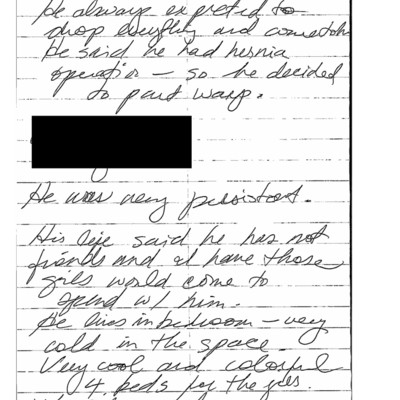 He always expected to
drop everything and come to him
He said he had hernia
operation – so he decided
to part ways.
He was very persistent.
His life said he has not
friends and al have those
girls would come to
spend w/ him.
He lives in bedroom – very
cold in the space.
Very cool and colorful
4 beds for the girls.